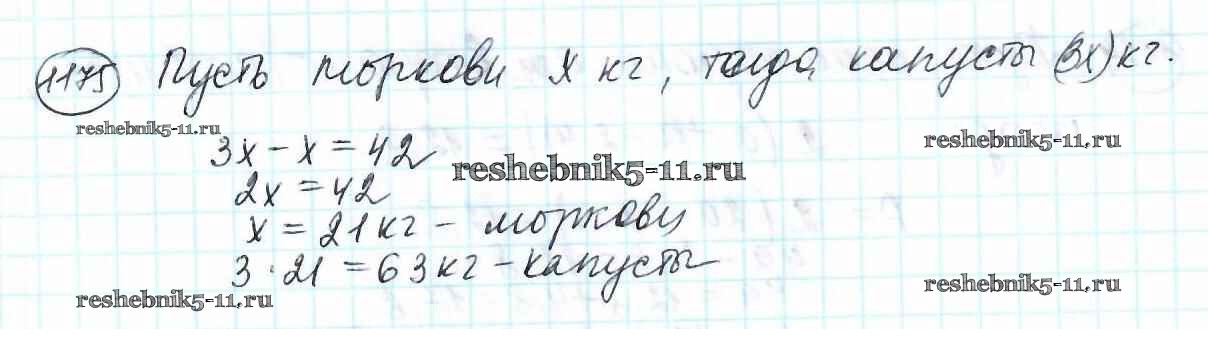 1175 Пусть моркови x кг, тогда капусты (3x) кг.
reshebnik5-11.ru
3x - x = 42
reshebnik5-11.ru
reshebnik5-11.ru
2x = 42
x = 21 кг - моркови
3 · 21 = 63 кг - капусты
reshebnik5-11.ru
reshebnik5-11.ru